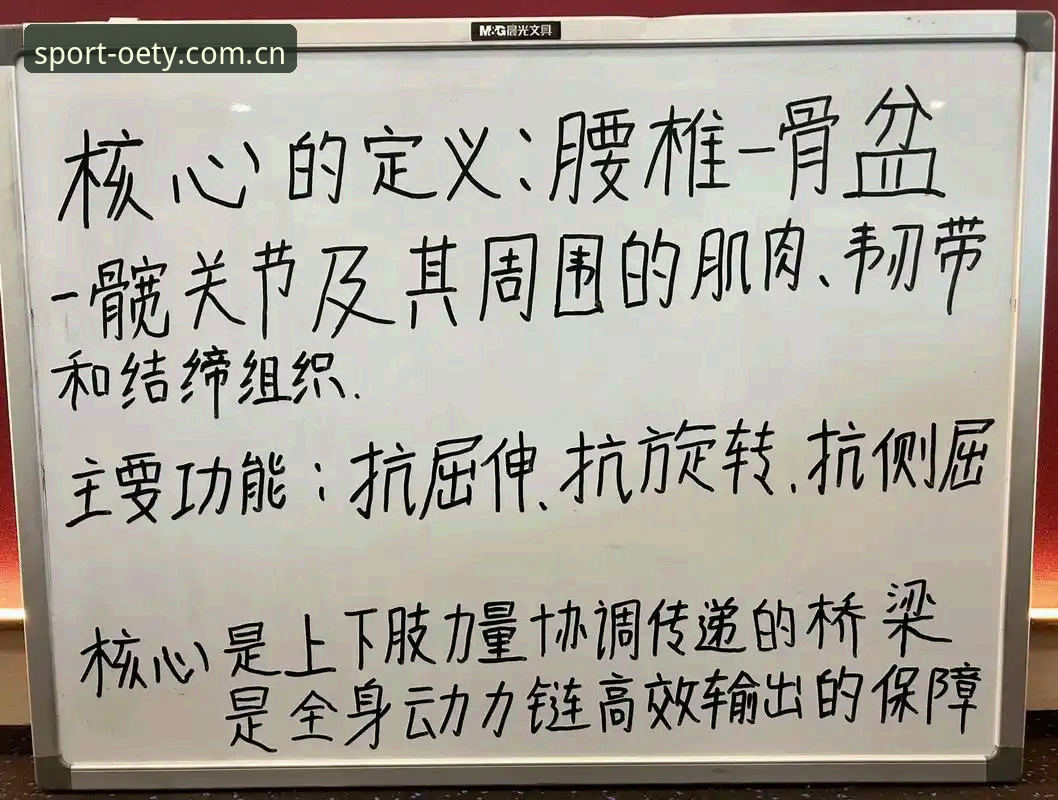 M&G晨光文具
sport-oety.com.cn
核心的定义:腰椎-骨盆
-髋关节及其周围的肌肉、韧带
和结缔组织.
主要功能:抗屈伸、抗旋转、抗侧屈
核心是上下肢力量协调传递的桥梁
是全身动力链高效输出的保障